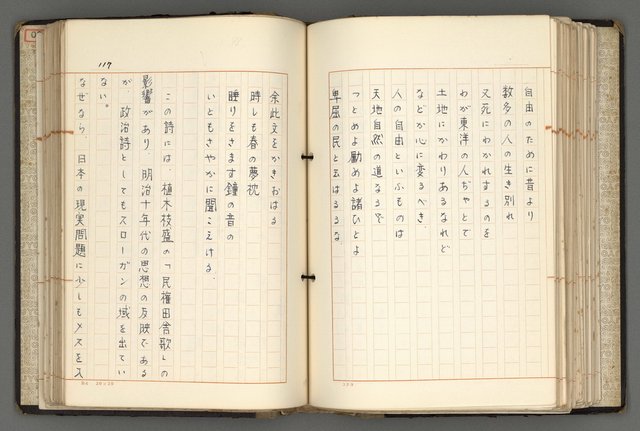 自由のために昔より
数多の人の生き別れ
又死にわかれするのを
わが東洋の人ぢやとて
土地にかわりあるなれど
などか心に変るべき
人の自由といふものは
天地自然の道なるぞ
つとめよ励めよ諸ひとよ
卑屈の民と云はるるな
117
余此文をかきおはる
時しも春の夢枕
睡りをさます鐘の音の
いともさやかに聞こえける。
この詩には、植木枝盛の「民権田舎歌」の
影響があり、明治十年代の思想の反映である
が、政治詩としてもスローガンの域を出てい
ない。
なぜなら、日本の現実問題に少しもメスを入